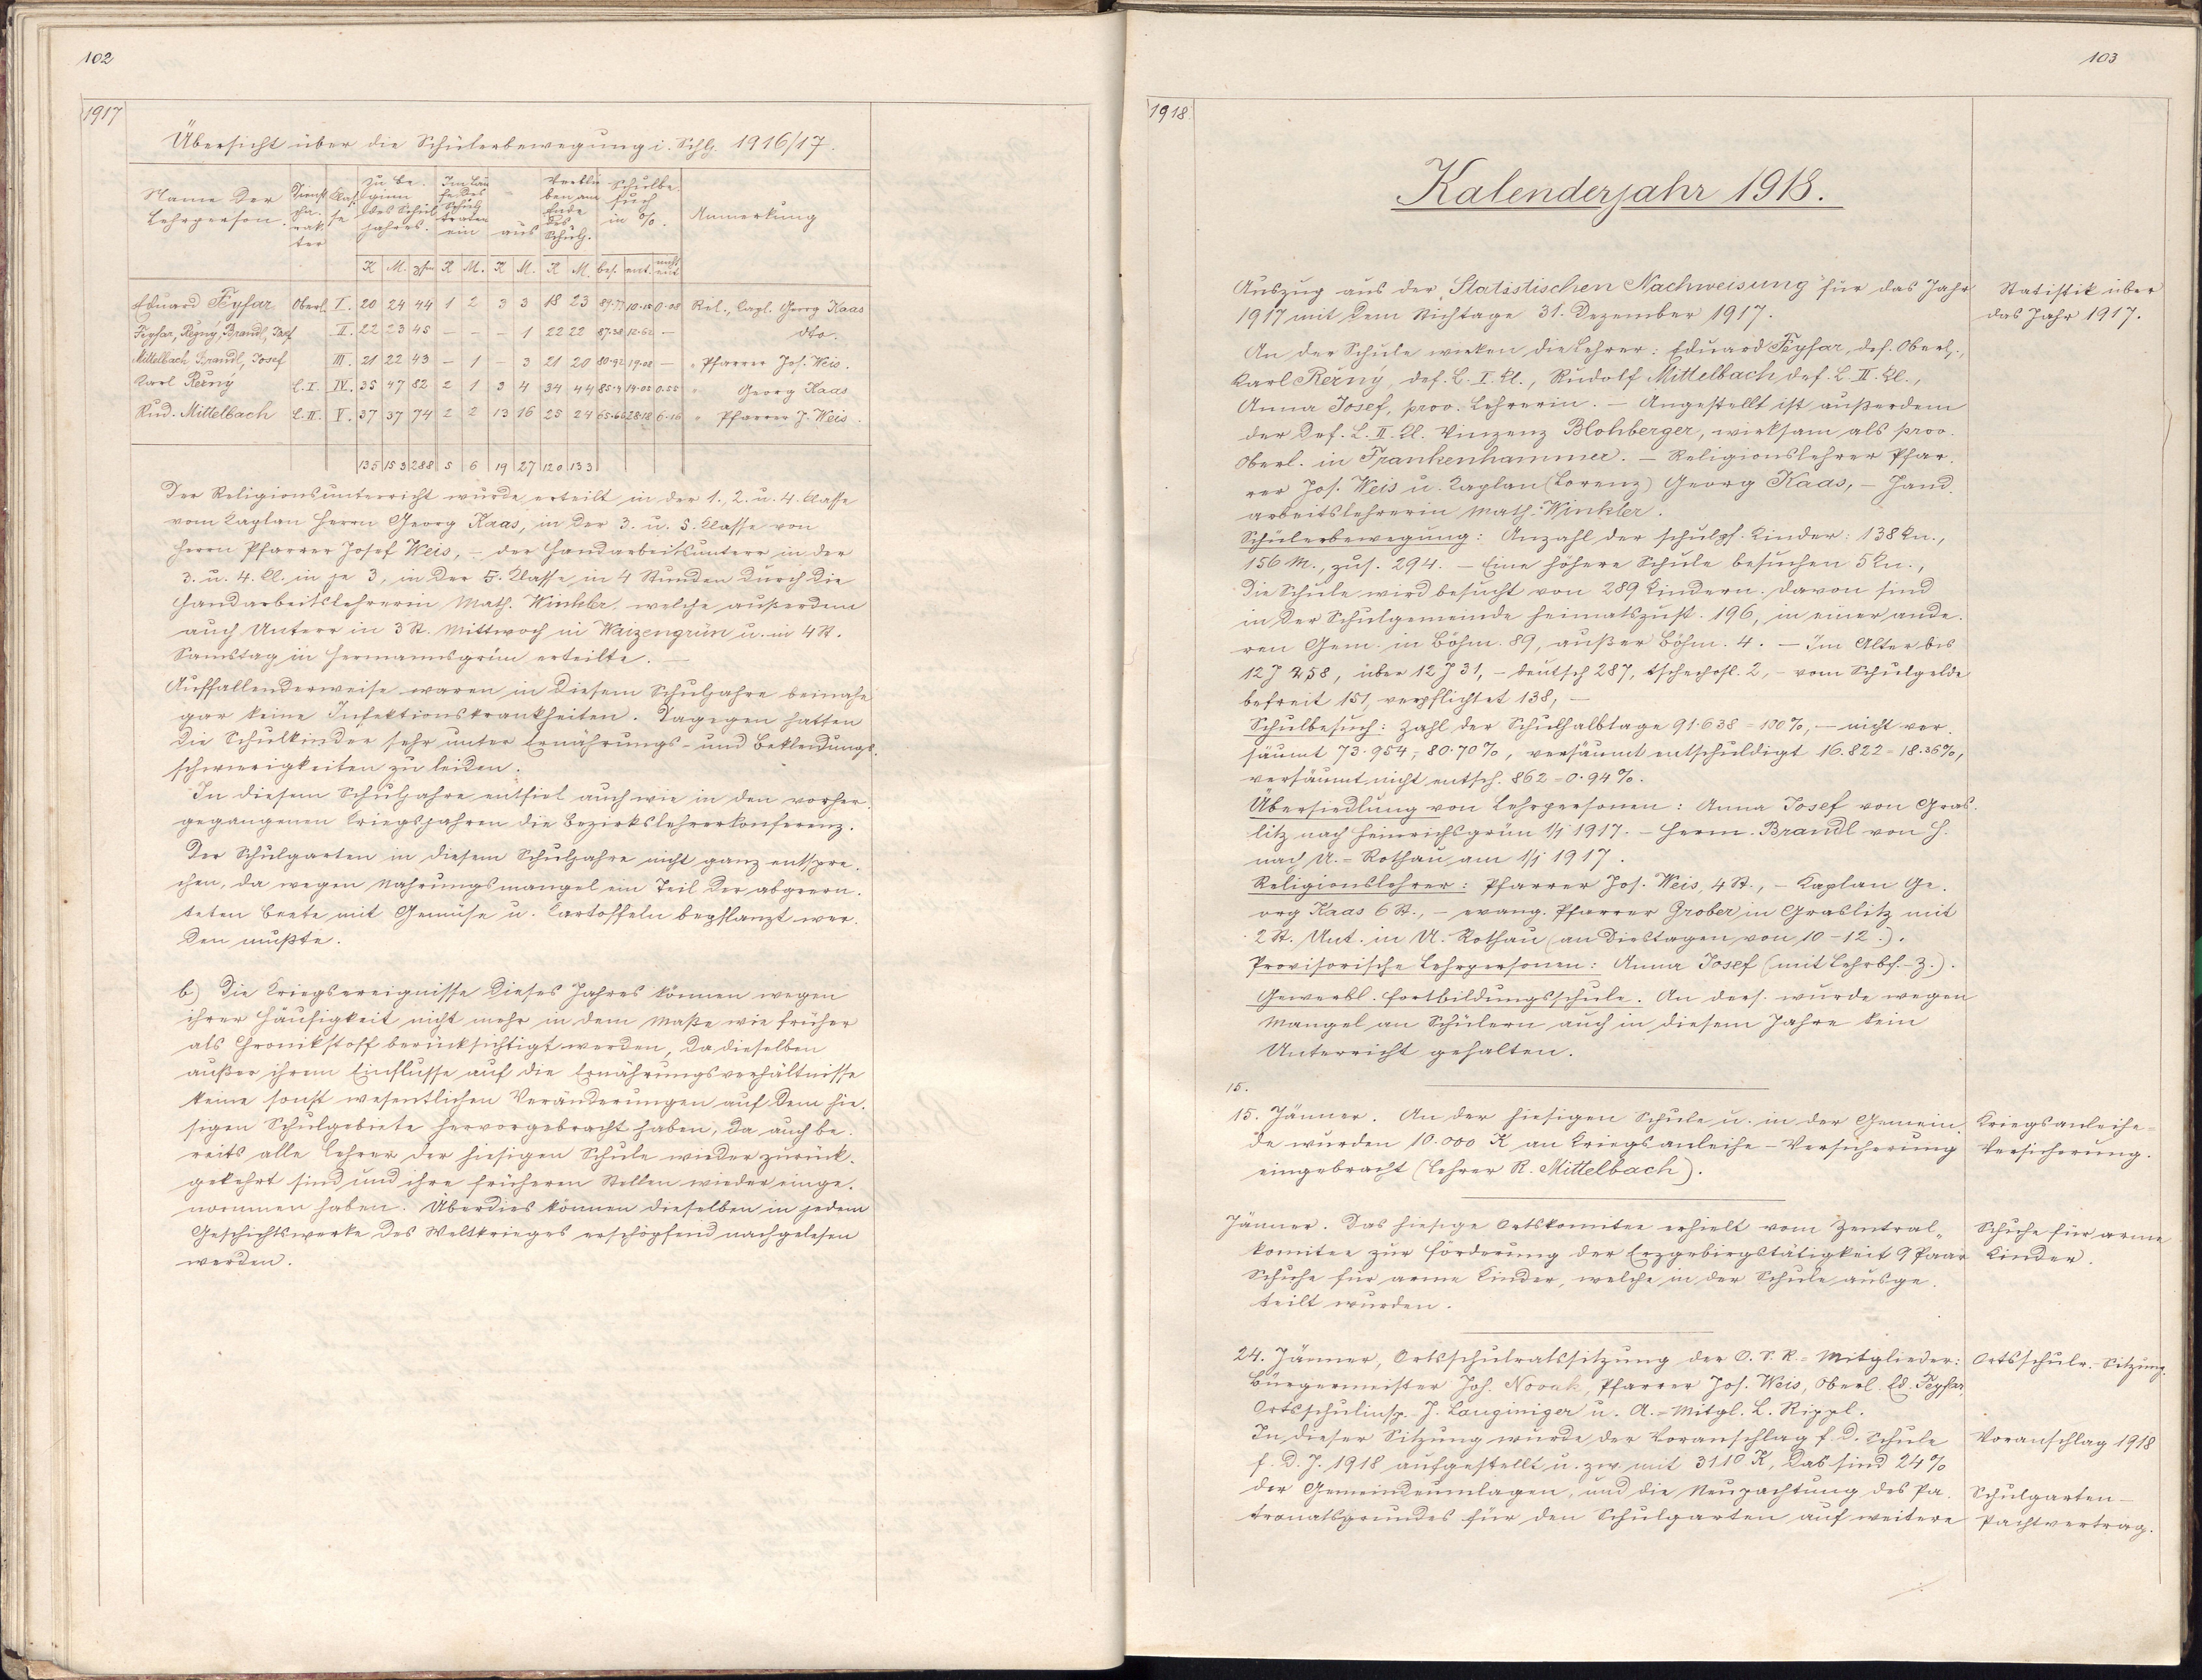 102
1917
Übersicht über die Schülerbewegung i. Schlj. 1916/17.
Name der Lehrperson. | Dienstcharakter | Klasse | Zu Beginn des Schuljahres. | Im Laufe des Schulj. traten ein | aus | Verblieben am Ende des Schulj. | Schulbesuch in %. | Anmerkung
K | M. | zsm | K | M. | K | M. | K | M. | bes. | ent. | nicht ent
Eduard Feyfar | Oberl. | I. | 20 | 24 | 44 | 1 | 2 | 3 | 3 | 18 | 23 | 89.77 | 10.15 | 0.08 | Rel., Capl. Georg Kaas
Feyfar, Režný, Brandl, Josef | II. | 22 | 23 | 45 | – | – | – | 1 | 22 | 22 | 87.38 | 12.62 | – | dto.
Mittelbach Brandl, Josef | III. | 21 | 22 | 43 | – | 1 | – | 3 | 21 | 20 | 80.92 | 19.08 | – | " Pfarrer Jos. Weis.
Karl Režný | L. I. | IV. | 35 | 47 | 82 | 2 | 1 | 3 | 4 | 34 | 44 | 85.4 | 14.05 | 0.55 | " Georg Kaas
Rud. Mittelbach | L. II. | V. | 37 | 37 | 74 | 2 | 2 | 13 | 16 | 25 | 24 | 65.66 | 28.18 | 6.16 | " Pfarrer J. Weis.
135 | 153 | 288 | 5 | 6 | 19 | 27 | 120 | 133
Der Religionsunterricht wurde erteilt in der 1., 2. u. 4. Klasse
vom Kaplan Herrn Georg Kaas, in der 3. u. 5. Klasse von
Herrn Pfarrer Josef Weis, – der Handarbeitsunterr in der
3. u. 4. Kl. in je 3, in der 5. Klasse in 4 Stunden durch die
Handarbeitslehrerin Math. Winkler, welche außerdem
auch Unterr in 3 St. Mittwoch in Waizengrün u. in 4 St.
Samstag in Hermannsgrün erteilte. –
Auffallenderweise waren in diesem Schuljahre beinahe
gar keine Infektionskrankheiten. Dagegen hatten
die Schulkinder sehr unter Ernährungs- und Bekleidungs-
schwierigkeiten zu leiden.
In diesem Schuljahre entfiel auch wie in den vorher-
gegangenen Kriegsjahren die Bezirkslehrerkonferenz.
Der Schulgarten in diesem Schuljahre nicht ganz entspre-
chen, da wegen Nahrungsmangel ein Teil der abgeern-
teten Beete mit Gemüse u. Kartoffeln bepflanzt wer-
den mußte.
b.) Die Kriegsereignisse dieses Jahres können wegen
ihrer Häufigkeit nicht mehr in dem Maße wie früher
als Chronikstoff berücksichtigt werden, da dieselben
außer ihrem Einflusse auf die Ernährungsverhältnisse
keine sonst wesentlichen Veränderungen auf dem hie-
sigen Schulgebiete hervorgebracht haben, da auch be-
reits alle Lehrer der hiesigen Schule wieder zurück-
gekehrt sind und ihre früheren Stellen wieder einge-
nommen haben. Überdies können dieselben in jedem
Geschichtswerke des Weltkrieges erschöpfend nachgelesen
werden.
103
1918.
Kalenderjahr 1918.
Auszug aus der "Statistischen Nachweisung" für das Jahr
1917 mit dem Stichtage 31. Dezember 1917.
Statistik über
das Jahr 1917.
An der Schule wirken die Lehrer: Eduard Feyfar, def. Oberl.,
Karl Režný, def. L. I. Kl., Rudolf Mittelbach def. L. II. Kl.,
Anna Josef, prov. Lehrerin. – Angestellt ist außerdem
der def. L. II. Kl. Vinzenz Blohberger, wirksam als prov.
Oberl. in Frankenhammer. – Religionslehrer Pfar-
rer Jos. Weis u. Kaplan (Lorenz) Georg Kaas, – Hand-
arbeitslehrerin Math. Winkler.
Schülerbewegung: Anzahl der schulpf. Kinder: 138 Kn.,
156 M., zus. 294. – Eine höhere Schule besuchen 5 Kn.,
Die Schule wird besucht von 289 Kindern. Davon sind
in der Schulgemeinde heimatszust. 196, in einer ande-
ren Gem. in Böhm. 89, außer Böhm. 4. – Im Alter bis
12 J 258, über 12 J 31, – deutsch 287, tschechosl. 2, – vom Schulgelde
befreit 151, verpflichtet 138, –
Schulbesuch: Zahl der Schulhalbtage 91.638 = 100%, – nicht ver-
säumt 73.954, 80.70%, versäumt entschuldigt 16.822 = 18.36%,
versäumt nicht entsch. 862 = 0.94%.
Übersiedlung von Lehrpersonen: Anna Josef von Gras-
litz nach Heinrichsgrün 1/1 1917. – Herm. Brandl von H.
nach U.-Rothau am 1/1 1917.
Religionslehrer: Pfarrer Jos. Weis, 4 St., – Kaplan Ge-
org Kaas 6 St., – evang. Pfarrer Grober in Graslitz mit
2 St. Unt. in U. Rothau (an Dinstagen von 10–12.).
Provisorische Lehrpersonen: Anna Josef (mit Lehrbf.-Z.).
Gewerbl. Fortbildungsschule. An ders. wurde wegen
Mangel an Schülern auch in diesem Jahre kein
Unterricht gehalten.
15.
15. Jänner. An der hiesigen Schule u. in der Gemein-
de wurden 10.000 K an Kriegsanleihe-Versicherung
eingebracht (Lehrer R. Mittelbach).
Kriegsanleihe-
Versicherung.
Jänner. Das hiesige Ortskomitee erhielt vom Zentral-
komitee zur Förderung der Erzgebirgstätigkeit 9 Paar
Schuhe für arme Kinder, welche in der Schule ausge-
teilt wurden.
Schuhe für arme
Kinder.
24. Jänner, Ortsschulratssitzung der O. S. R.-Mitglieder:
Bürgermeister Joh. Novak, Pfarrer Jos. Weis, Oberl. Ed. Feyfar,
Ortsschulinsp. J. Langiniger u. A.-Mitgl. L. Rippl.
Ortsschulr.-Sitzung.
In dieser Sitzung wurde der Voranschlag f. d. Schule
f. d. J. 1918 aufgestellt u. zw. mit 3110 K, das sind 24%
der Gemeindeumlagen, und die Neupachtung des Pa-
tronatsgrundes für den Schulgarten auf weitere
Voranschlag 1918
Schulgarten-
Pachtvertrag.